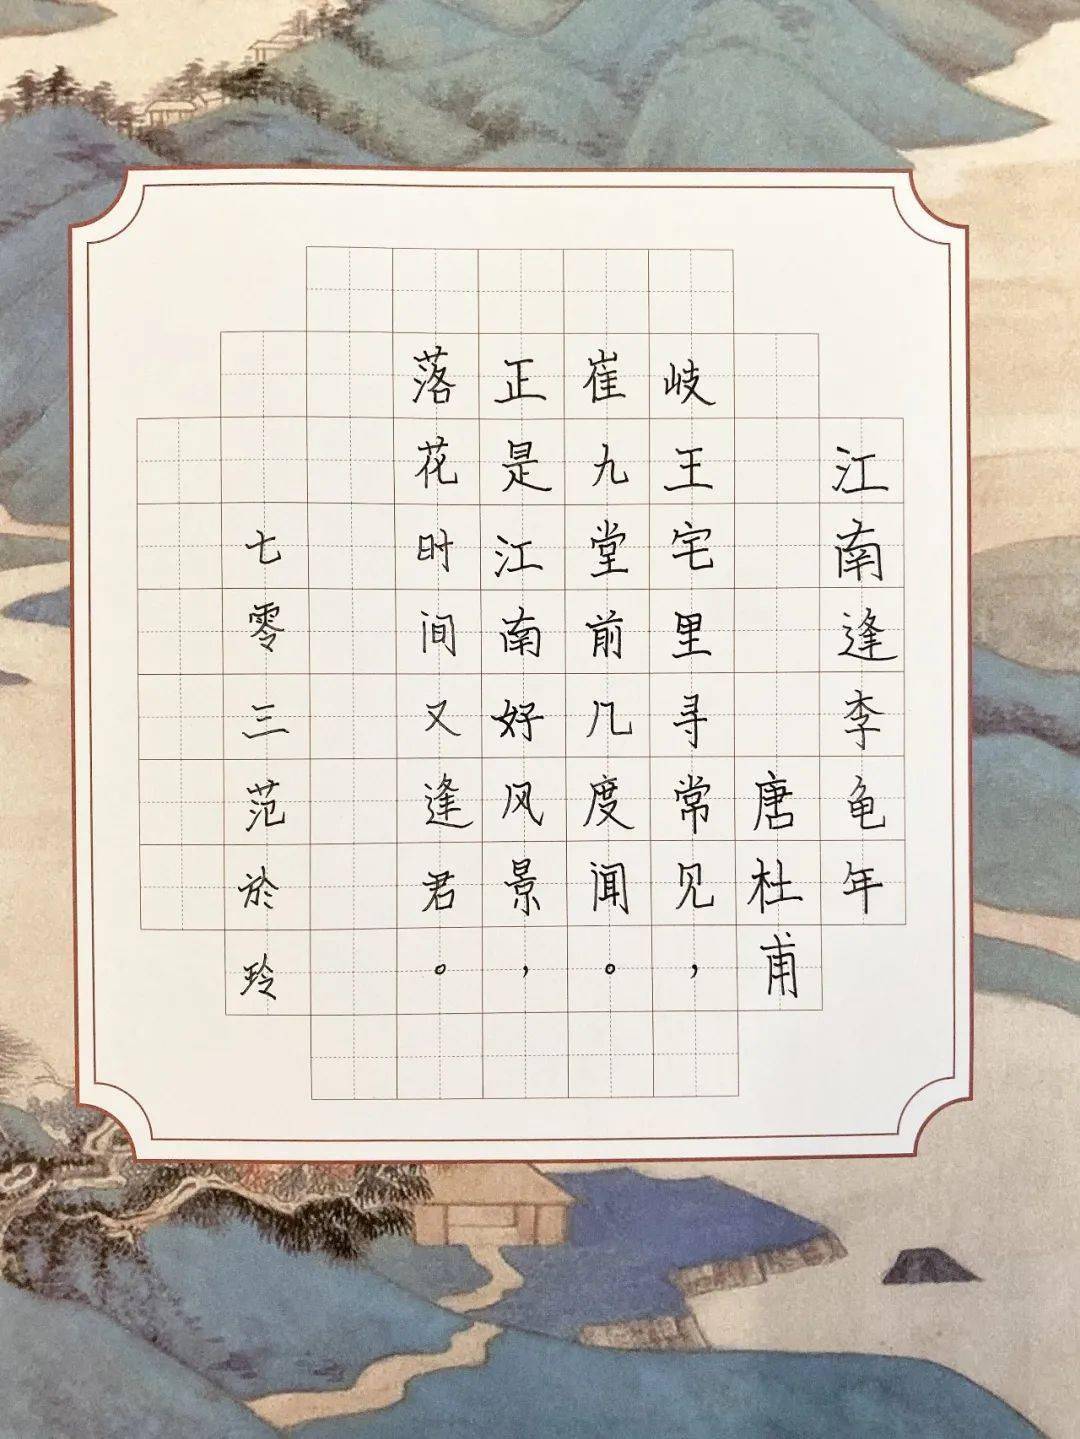 江南逢李龟年
唐杜甫
岐王宅里寻常见，
崔九堂前几度闻。
正是江南好风景，
落花时间又逢君。
七零三范於玲